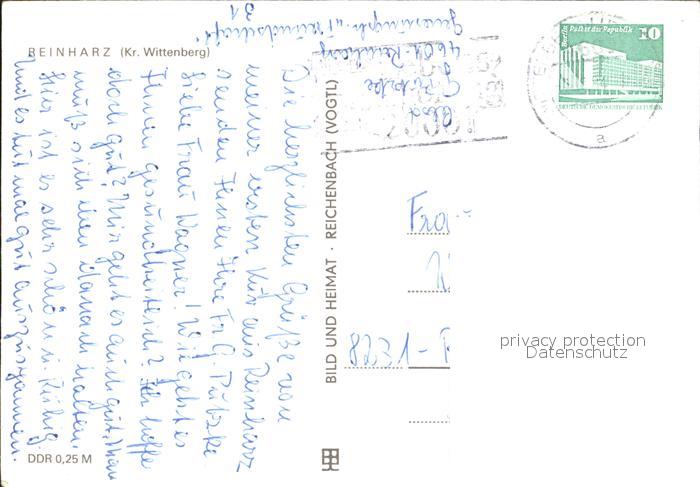 REINHARZ (Kr. Wittenberg)
Die herzlichsten Grüße von
meiner ersten Kur aus Reinharz
senden Ihnen Ihre Fr. G. Pützke
Liebe Frau Wagner! Wie geht es
Ihnen gesundheitlich? Ich hoffe
doch gut? Mir geht es auch gut. Man
muß sich eben danach halten.
Hier ist es sehr schön u. Ruhig
und es tut mal gut auszuspannen.
DDR 0,25 M
BILD UND HEIMAT · REICHENBACH (VOGTL)
Abs.
G. Pützke
4601 Reinharz
"Freundschaft"
Berlin, Palast der Republik
10
DEUTSCHE DEMOKRATISCHE REPUBLIK
a
Fra
8231-
privacy protection
Datenschutz